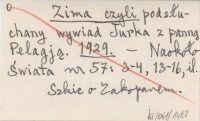 Zima czyli podsłu-
chany wywiad Jurka z panną
Pelagją. 1929. — Naokoło
Świata nr 57: 3-4, 13-16, il.
Szkic o Zakopanem.